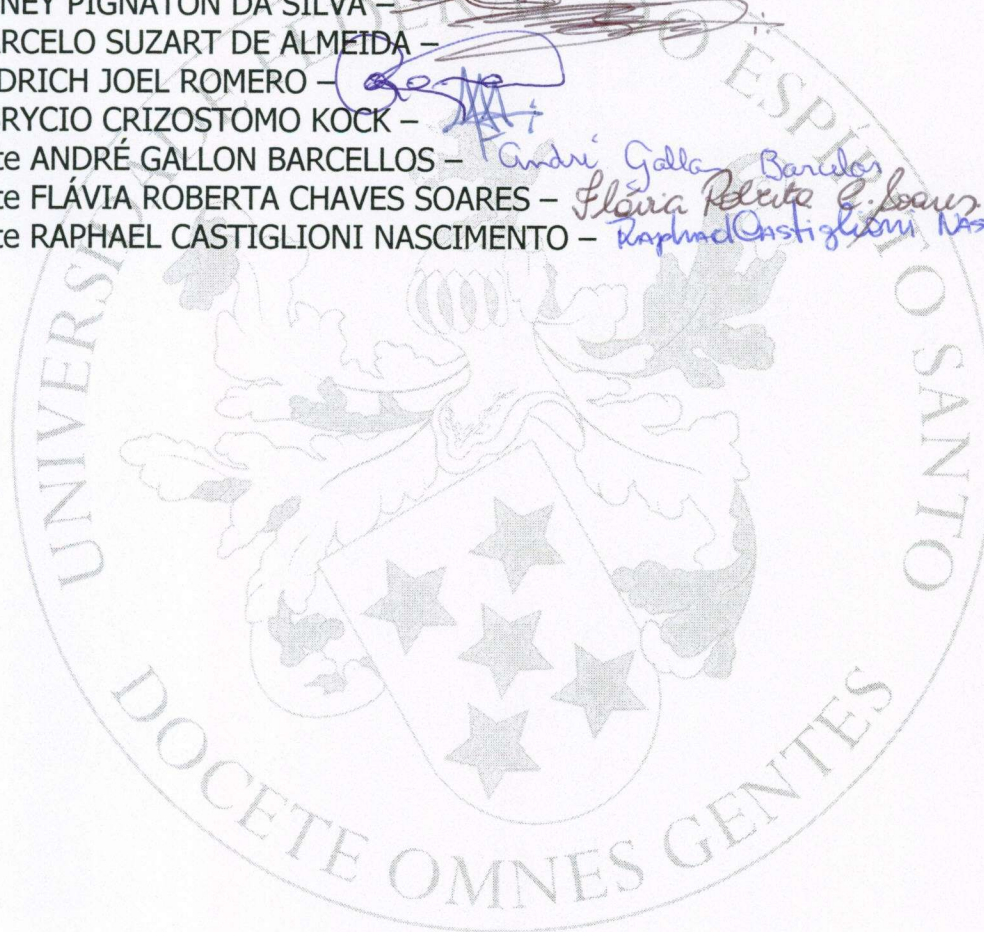 NEY PIGNATON DA SILVA –
RCELO SUZART DE ALMEIDA –
DRICH JOEL ROMERO –
RYCIO CRIZOSTOMO KOCK –
te ANDRÉ GALLON BARCELLOS – André Gallon Barcelos
te FLÁVIA ROBERTA CHAVES SOARES – Flávia Roberta C. Soares
te RAPHAEL CASTIGLIONI NASCIMENTO – Raphael Castiglioni Nas
UNIVERSIDADE FEDERAL DO ESPÍRITO SANTO
DOCETE OMNES GENTES